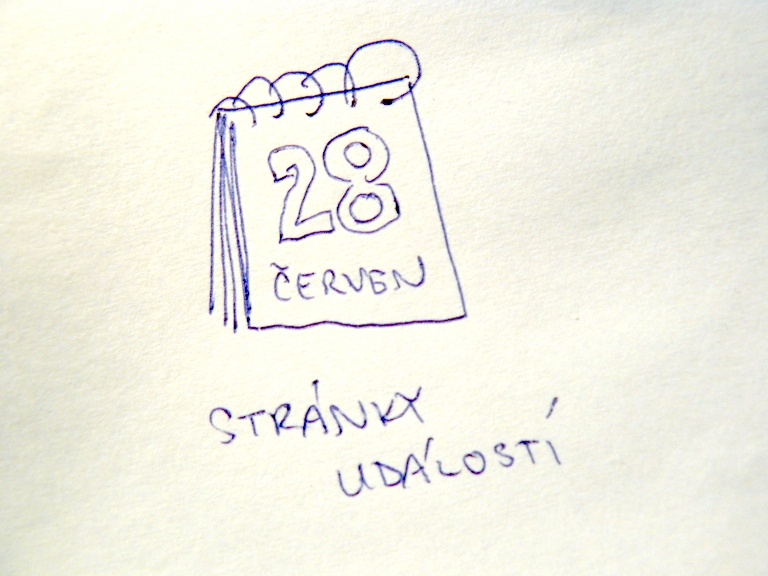 28
ČERVEN
STRÁNKY
UDÁLOSTÍ